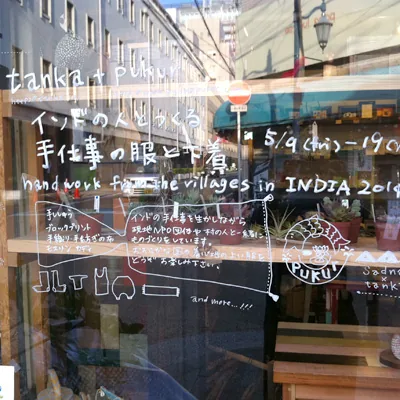 tanka + pukur
インドの人とつくる
手仕事の服と下着
5/9(fri)-19(
handwork from the villages in INDIA 2014
手ししゅう
ブロックプリント
インドの手仕事を生かしながら
現地NPO団体や村の人と一緒に
ものづくりをしています。
どうぞお楽しみ下さい。
and more...!!!
PUKU!
sadna
×
tank